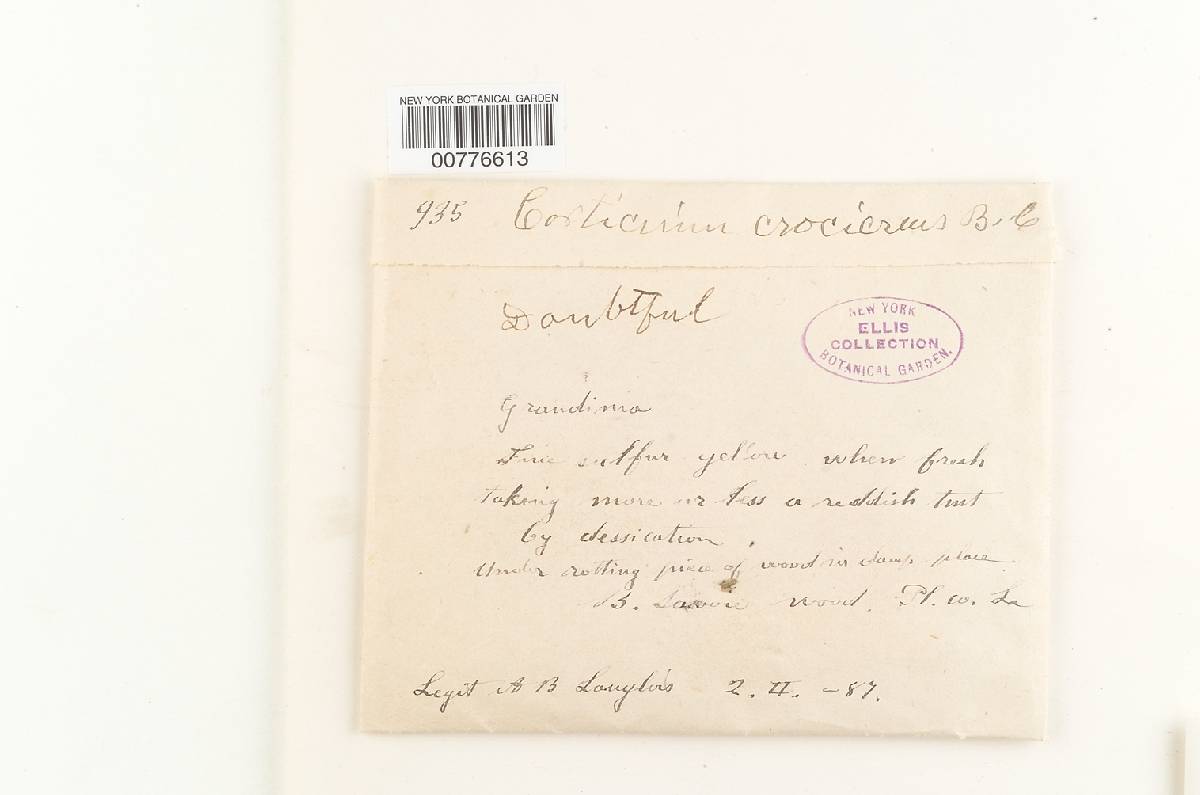 NEW YORK BOTANICAL GARDEN
00776613
935 Corticium crociereus B. C
Doubtful
NEW YORK
ELLIS
COLLECTION
BOTANICAL GARDEN.
Grandinia
Fine sulfur yellow when fresh
taking more or less a reddish tint
by dessication.
Under rotting piece of wood in damp place.
B. wood. Pl. co. La
Legit A B Langlois 2. II. -87.